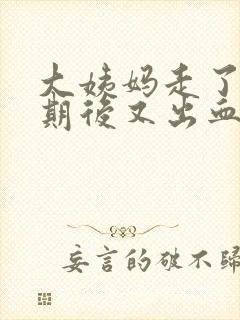 大姨妈走了
期後又出血
妄言的破不歸